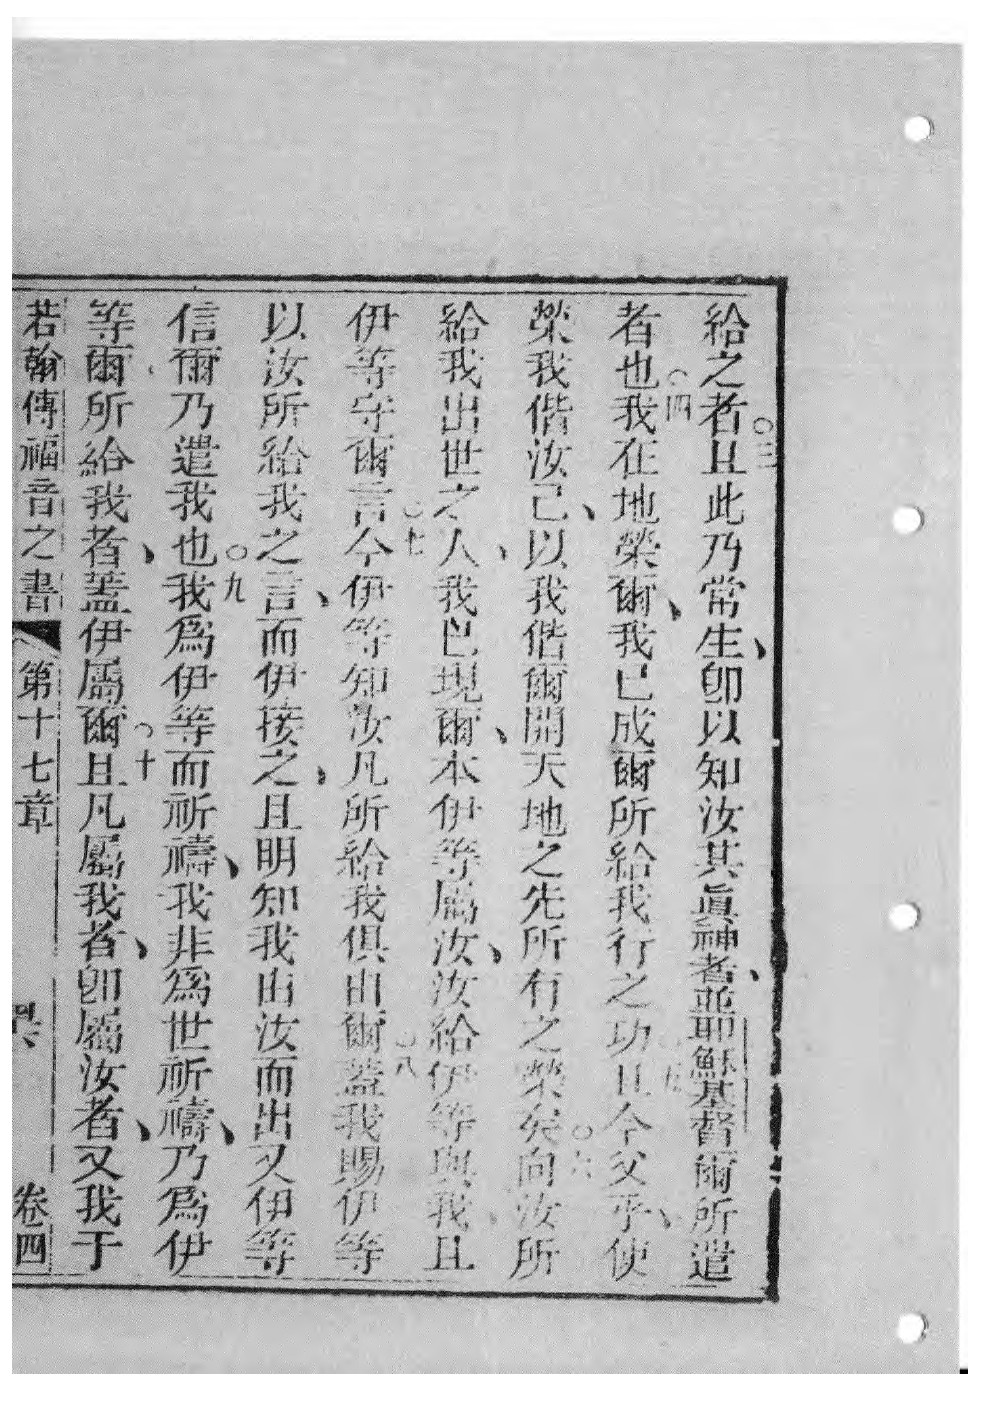 給之者○三且此乃常生、卽以知汝其眞神者、並耶穌基督爾所遣
者也○四我在地榮爾、我已成爾所給我行之功○五且今父乎、使
榮我偕汝己、以我偕爾開天地之先所有之榮矣○六向汝所
給我出世之人、我已現爾、本伊等屬汝、汝給伊等與我、且
伊等守爾言○七今伊等知汝凡所給我俱由爾○八蓋我賜伊等
以汝所給我之言、而伊接之、且明知我由汝而出又伊等
信爾乃遣我也○九我爲伊等而祈禱、我非爲世祈禱、乃爲伊
等爾所給我者、蓋伊屬爾○十且凡屬我者、卽屬汝者、又我于
若翰傳福音之書 第十七章 卷四